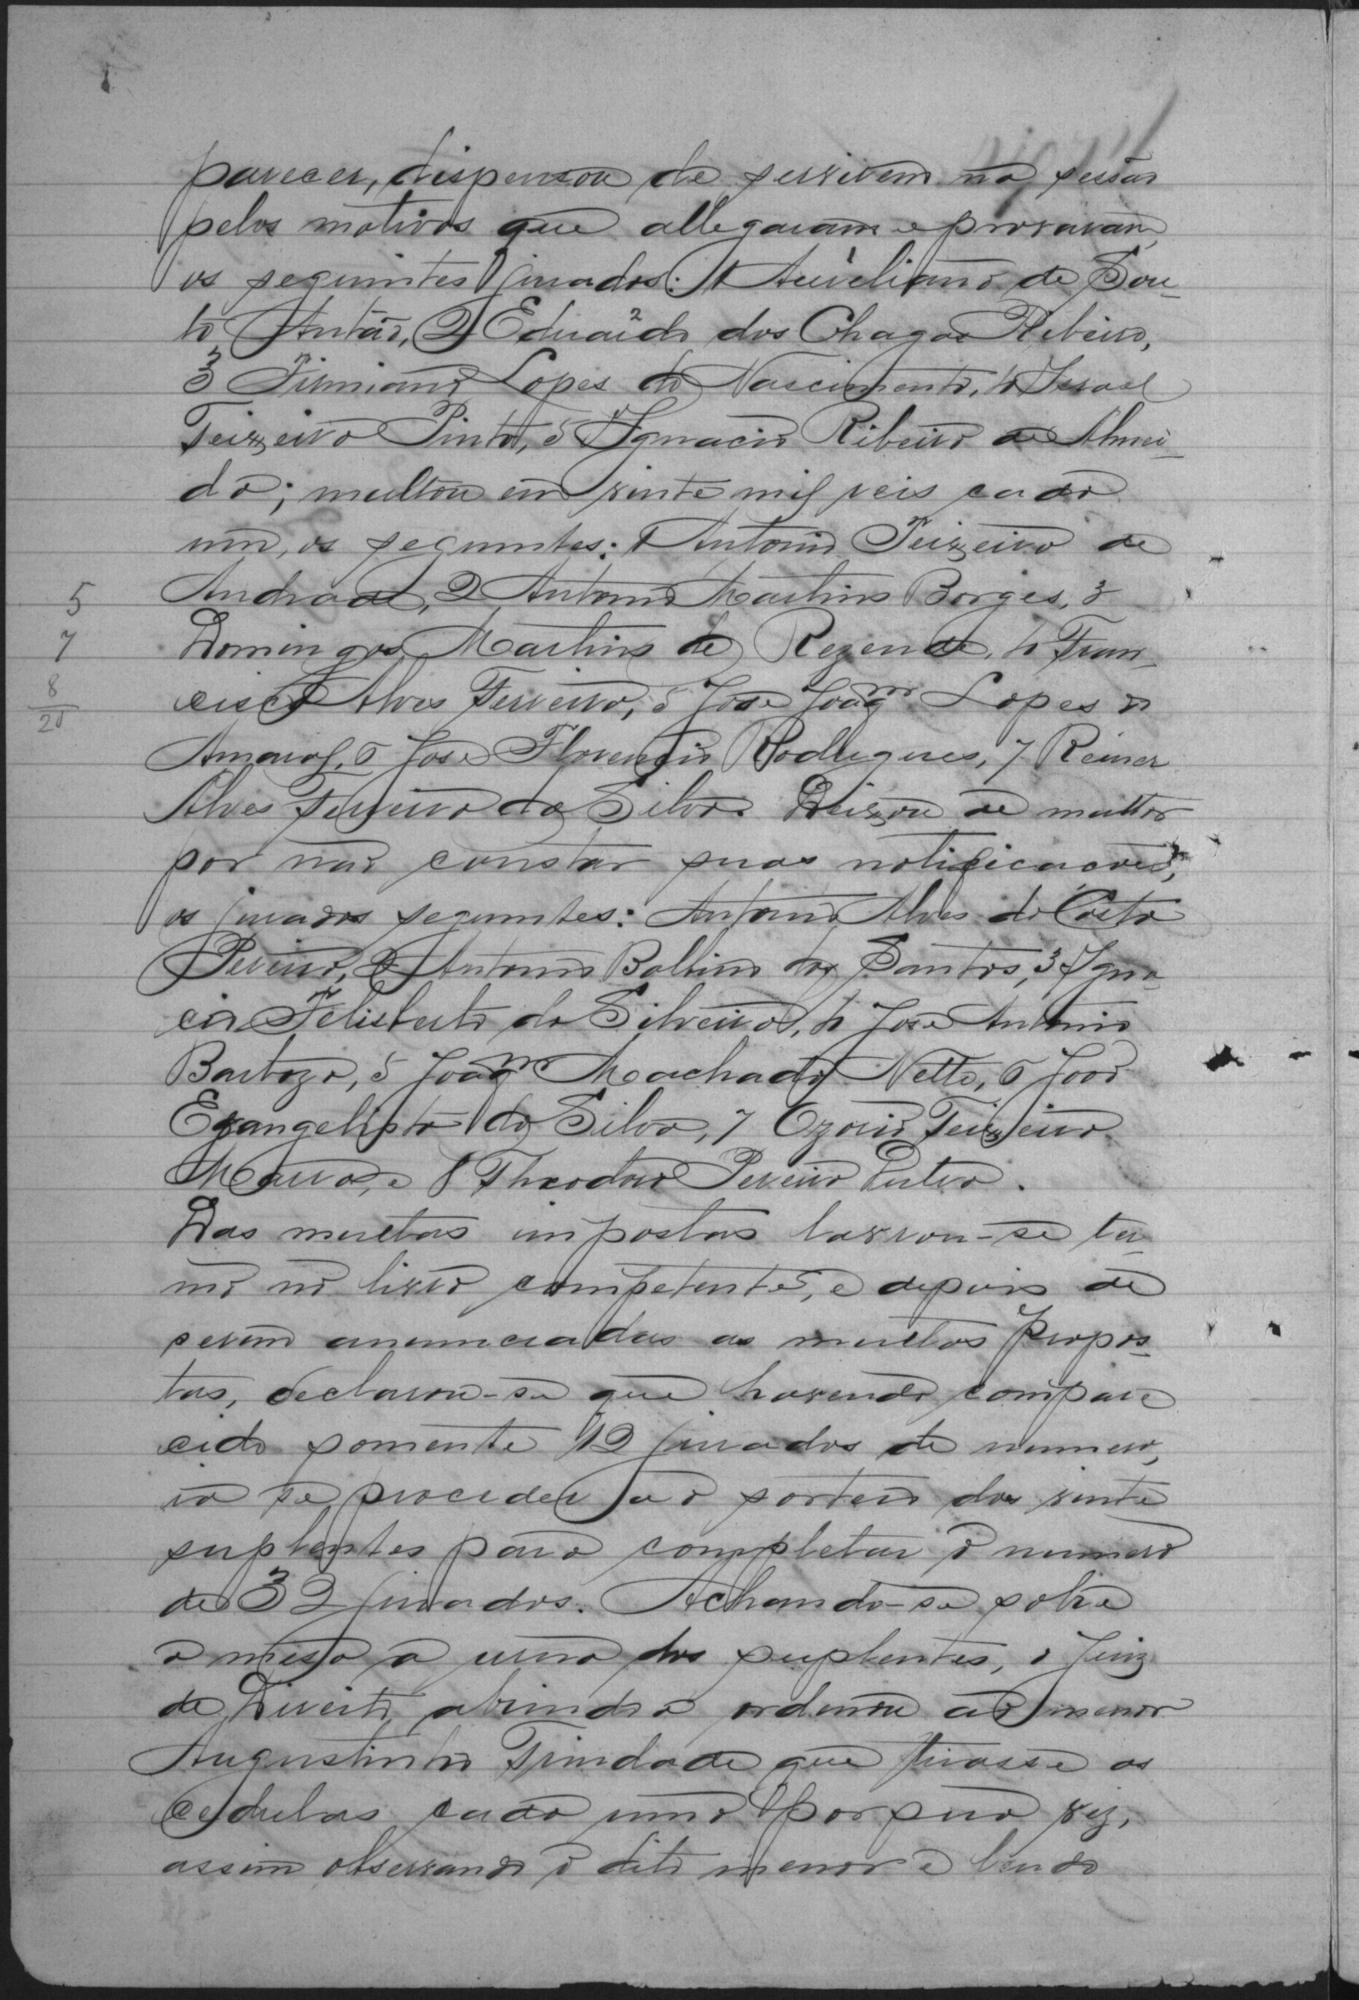 parecer, dispensou de servirem na sessão
pelos motivos que allegaram e provaram,
os seguintes jurados: 1 Aureliano de Sou-
to Antão, 2 Eduardo das Chagas Ribeiro,
3 Firmiano Lopes do Nascimento, 4 Israel
Teixeira Pinto, 5 Ignacio Ribeiro de Almei-
da; multou em vinte mil reis cada
um, os seguintes: 1 Antonio Teixeira de
Andrade, 2 Antonio Martins Borges, 3
5
7
8
20
Domingos Martins de Rezende, 4 Fran-
cisco Alves Ferreira, 5 Jose Joaqm Lopes do
Amaral, 6 Jose Florencio Rodrigues, 7
Alves Ferreira da Silva. Deixou de multar
por não constar suas notificacoes,
os jurados seguintes: Antonio Alves da Costa
Pereira, 2 Antonio Balbino dos Santos, 3 Igna-
cio Felisberto da Silveira, 4 Jose Antonio
Barboza, 5 Joaqm Machado Netto, 6 João
Evangelista da Silva, 7 Ozorio Teixeira
e 8 Theodoro Pereira
Das multas impostas lavrou-se ter-
mo no livro competente, e depois de
serem anunciadas as multas propos-
tas, declarou-se que havendo compare
cido somente 12 jurados de numero,
ia se proceder ao sorteio dos vinte
suplentes para completar o numero
de 32 jurados. Achando-se sobre
a mesa a urna dos suplentes, o Juiz
de Direito abrindo a ordenou ao menor
Augustinho Trindade que tirasse as
cedulas cada uma por sua vez,
assim observando o dito menor e lendo